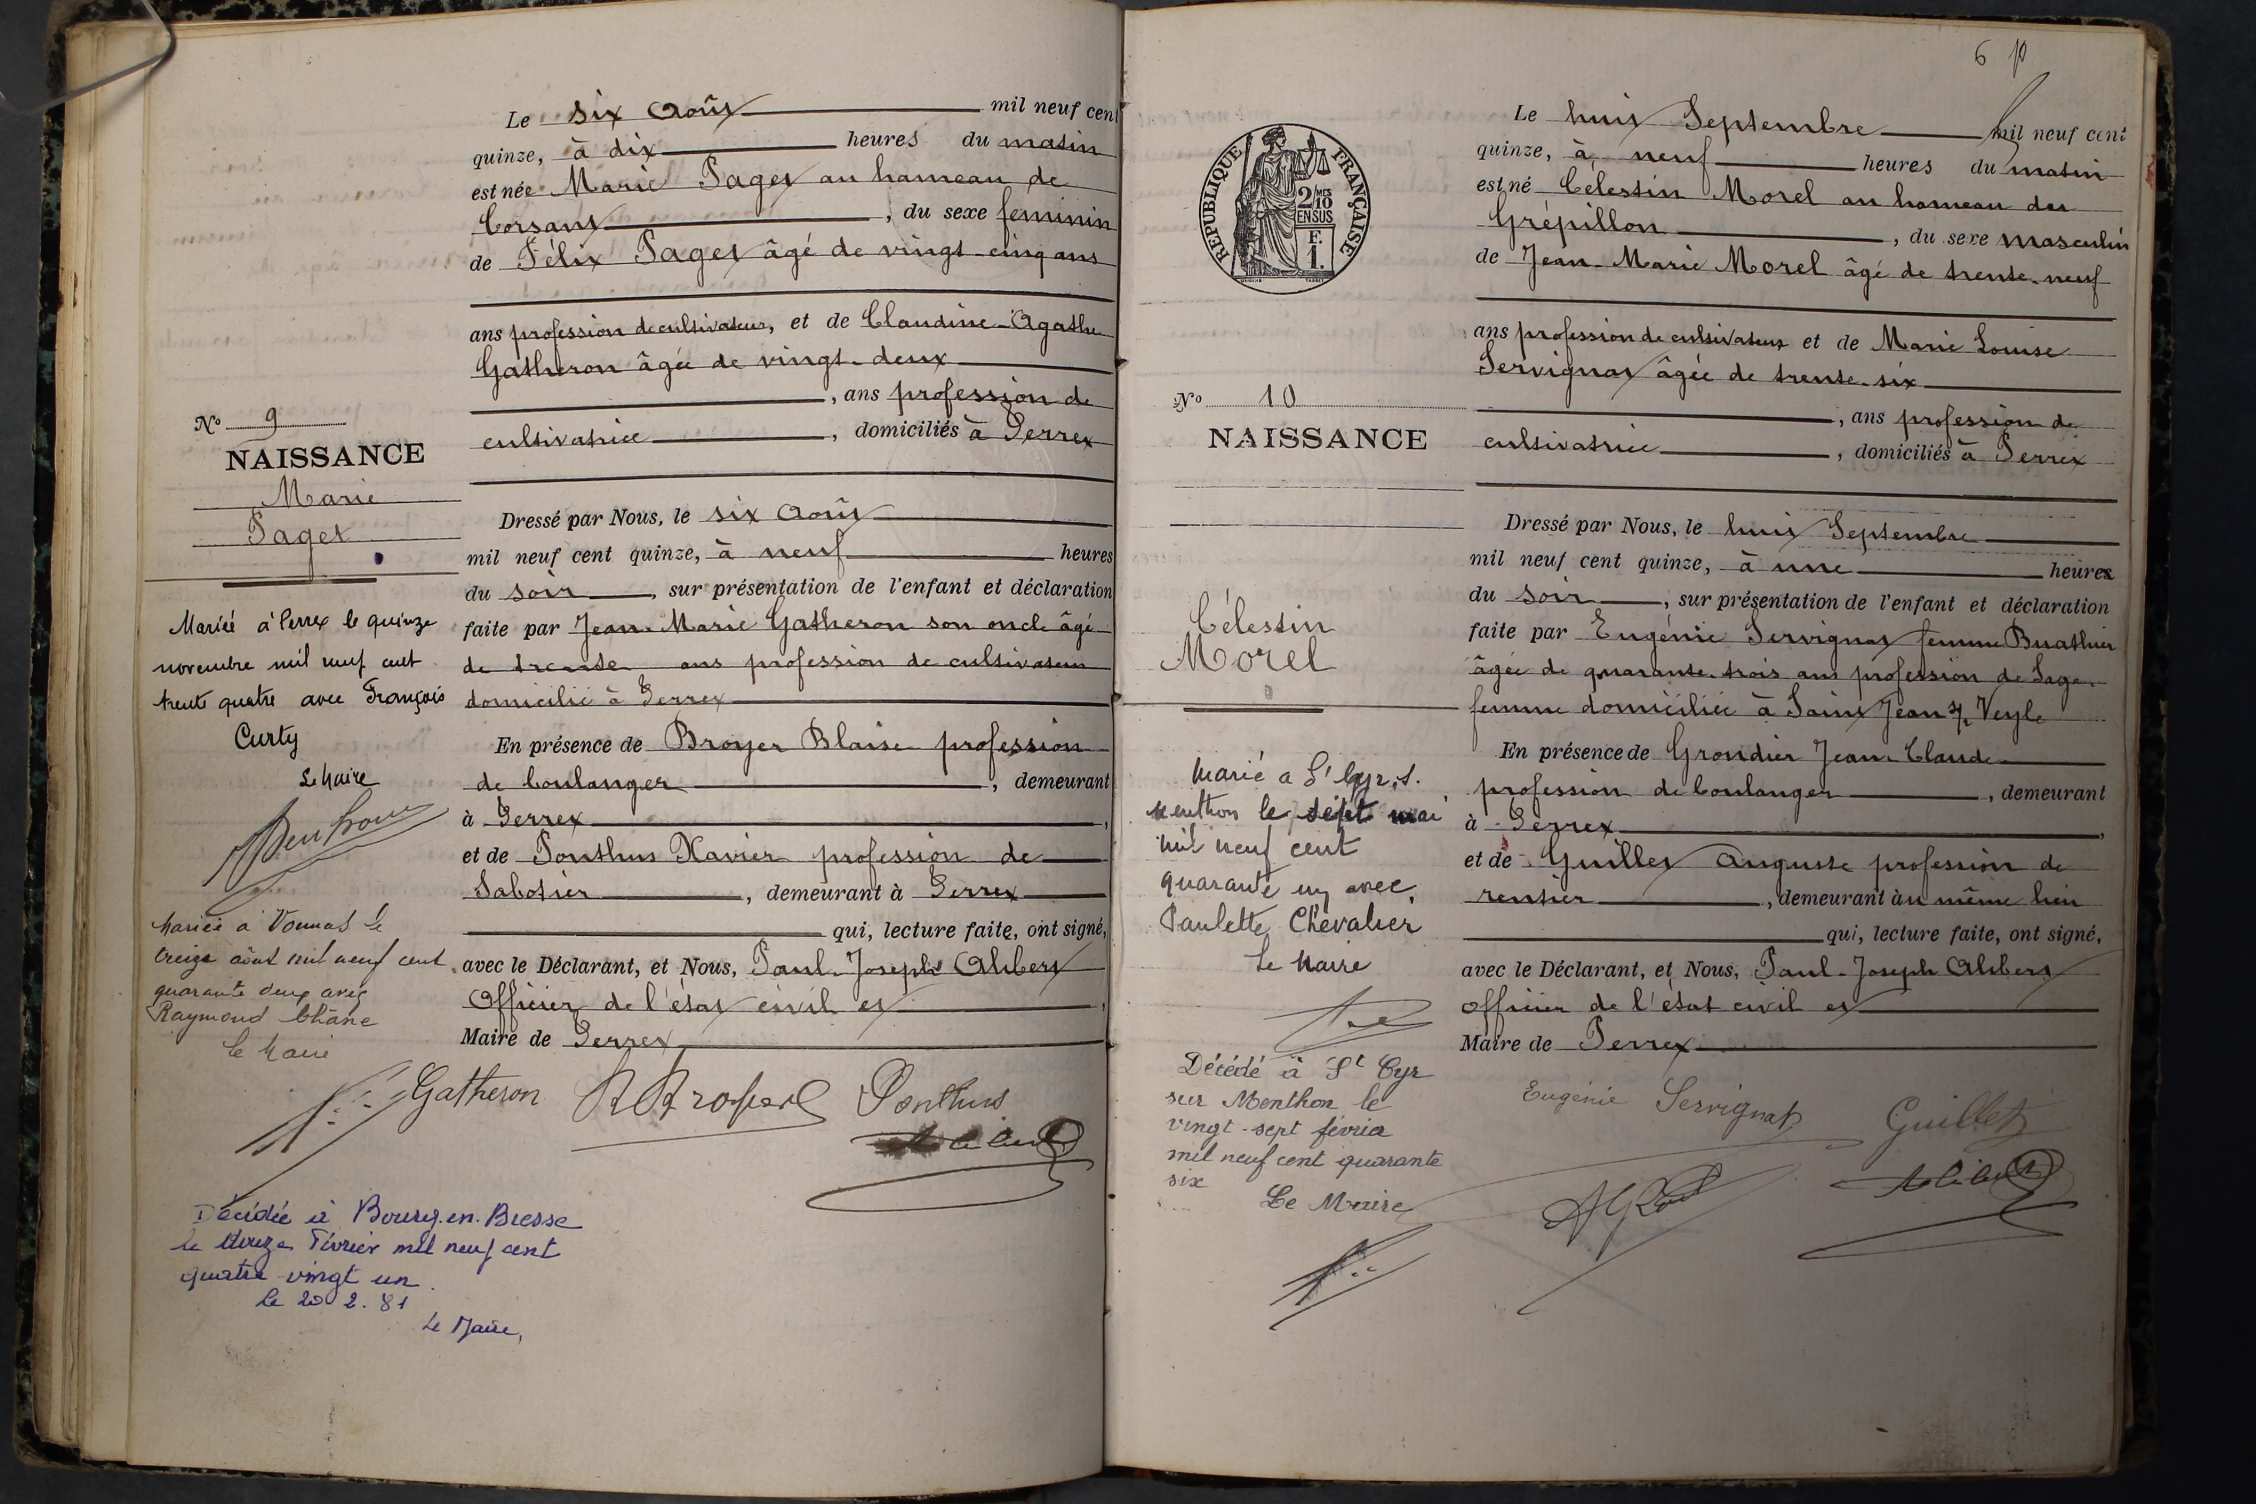 Le six Août mil neuf cent
quinze, à dix heures du matin
est née Marie Paget au hameau de
Corsant, du sexe feminin
de Félix Paget âgé de vingt-cinq ans
ans profession de cultivateur, et de Claudine-Agathe
Gatheron âgée de vingt-deux
, ans profession de
cultivatrice, domiciliés à Perrex
Dressé par Nous, le six Août
mil neuf cent quinze, à neuf heures
du soir, sur présentation de l'enfant et déclaration
faite par Jean-Marie Gatheron son oncle âgé
de trente ans profession de cultivateur
domicilié à Perrex
En présence de Broyer Blaise profession
de boulanger, demeurant
à Perrex,
et de Ponthus Xavier profession de
Sabotier, demeurant à Perrex
qui, lecture faite, ont signé,
avec le Déclarant, et Nous, Paul-Joseph Alibert
Officier de l'état civil et,
Maire de Perrex
Gatheron Ponthus
No 9
NAISSANCE
Marie
Paget
Mariée à Perrex le quinze
novembre mil neuf cent
trente quatre avec François
Curty
Le Maire
Mariée à Vonnas le
treize août mil neuf cent
quarante deux avec
Raymond Châne
Le Maire
Décédée à Bourg-en-Bresse
le douze Février mil neuf cent
quatre vingt un
le 20 2. 81
Le Maire,
6
REPUBLIQUE FRANÇAISE
2 MES
10
EN SUS
F.
1.
No 10
NAISSANCE
Célestin
Morel
Marié a St Cyr, s.
Menthon le sept mai
mil neuf cent
quarante un avec
Paulette Chevalier
Le Maire
Décédé à St Cyr
sur Menthon le
vingt-sept février
mil neuf cent quarante
six
Le Maire
Le huit Septembre mil neuf cent
quinze, à neuf heures du matin
est né Célestin Morel au hameau du
Grépillon, du sexe masculin
de Jean-Marie Morel âgé de trente-neuf
ans profession de cultivateur et de Marie Louise
Servignat âgée de trente-six
, ans profession de
cultivatrice, domiciliés à Perrex
Dressé par Nous, le huit Septembre
mil neuf cent quinze, à une heures
du soir, sur présentation de l'enfant et déclaration
faite par Eugénie Servignat femme Buathier
âgée de quarante-trois ans profession de Sage-
femme domiciliée à Saint Jean s/ Veyle
En présence de Grondier Jean-Claude
profession de boulanger, demeurant
à Perrex,
et de Guillet Auguste profession de
rentier, demeurant au même lieu
qui, lecture faite, ont signé,
avec le Déclarant, et Nous, Paul-Joseph Alibert
officier de l'état civil et
Maire de Perrex
Eugénie Servignat Guillet